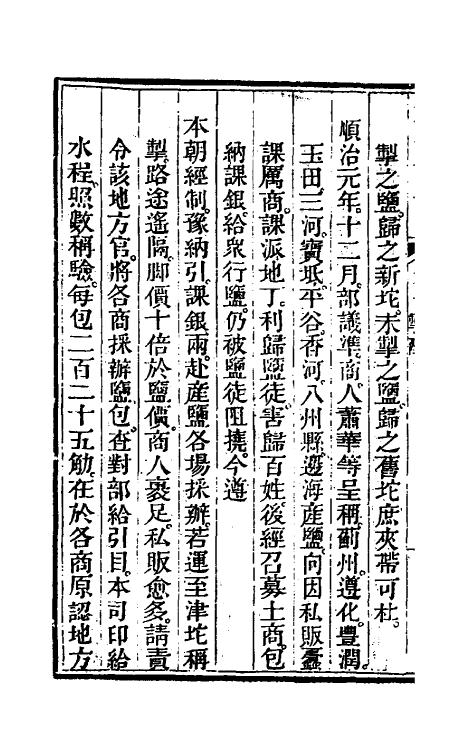 掣之鹽。歸之新坨。未掣之鹽。歸之舊坨。庶夾帶可杜。
順治元年。十二月。部議準。商人蕭華等呈稱。薊州。遵化。豐潤。
玉田。三河。寶坻。平谷。香河。八州縣。邊海產鹽。向因私販蠧
課厲商。課派地丁。利歸鹽徒。害歸百姓。後經召募土商。包
納課銀給衆行鹽。仍被鹽徒阻撓。今遵
本朝經制。豫納引課銀兩。赴産鹽各場採辦。若運至津坨稱
掣。路途遙隔。脚價十倍於鹽價。商人裹足。私販愈多。請責
令該地方官。將各商採辦鹽包。查對部給引目。本司印給
水程。照數稱驗。每包二百二十五觔。在於各商原認地方